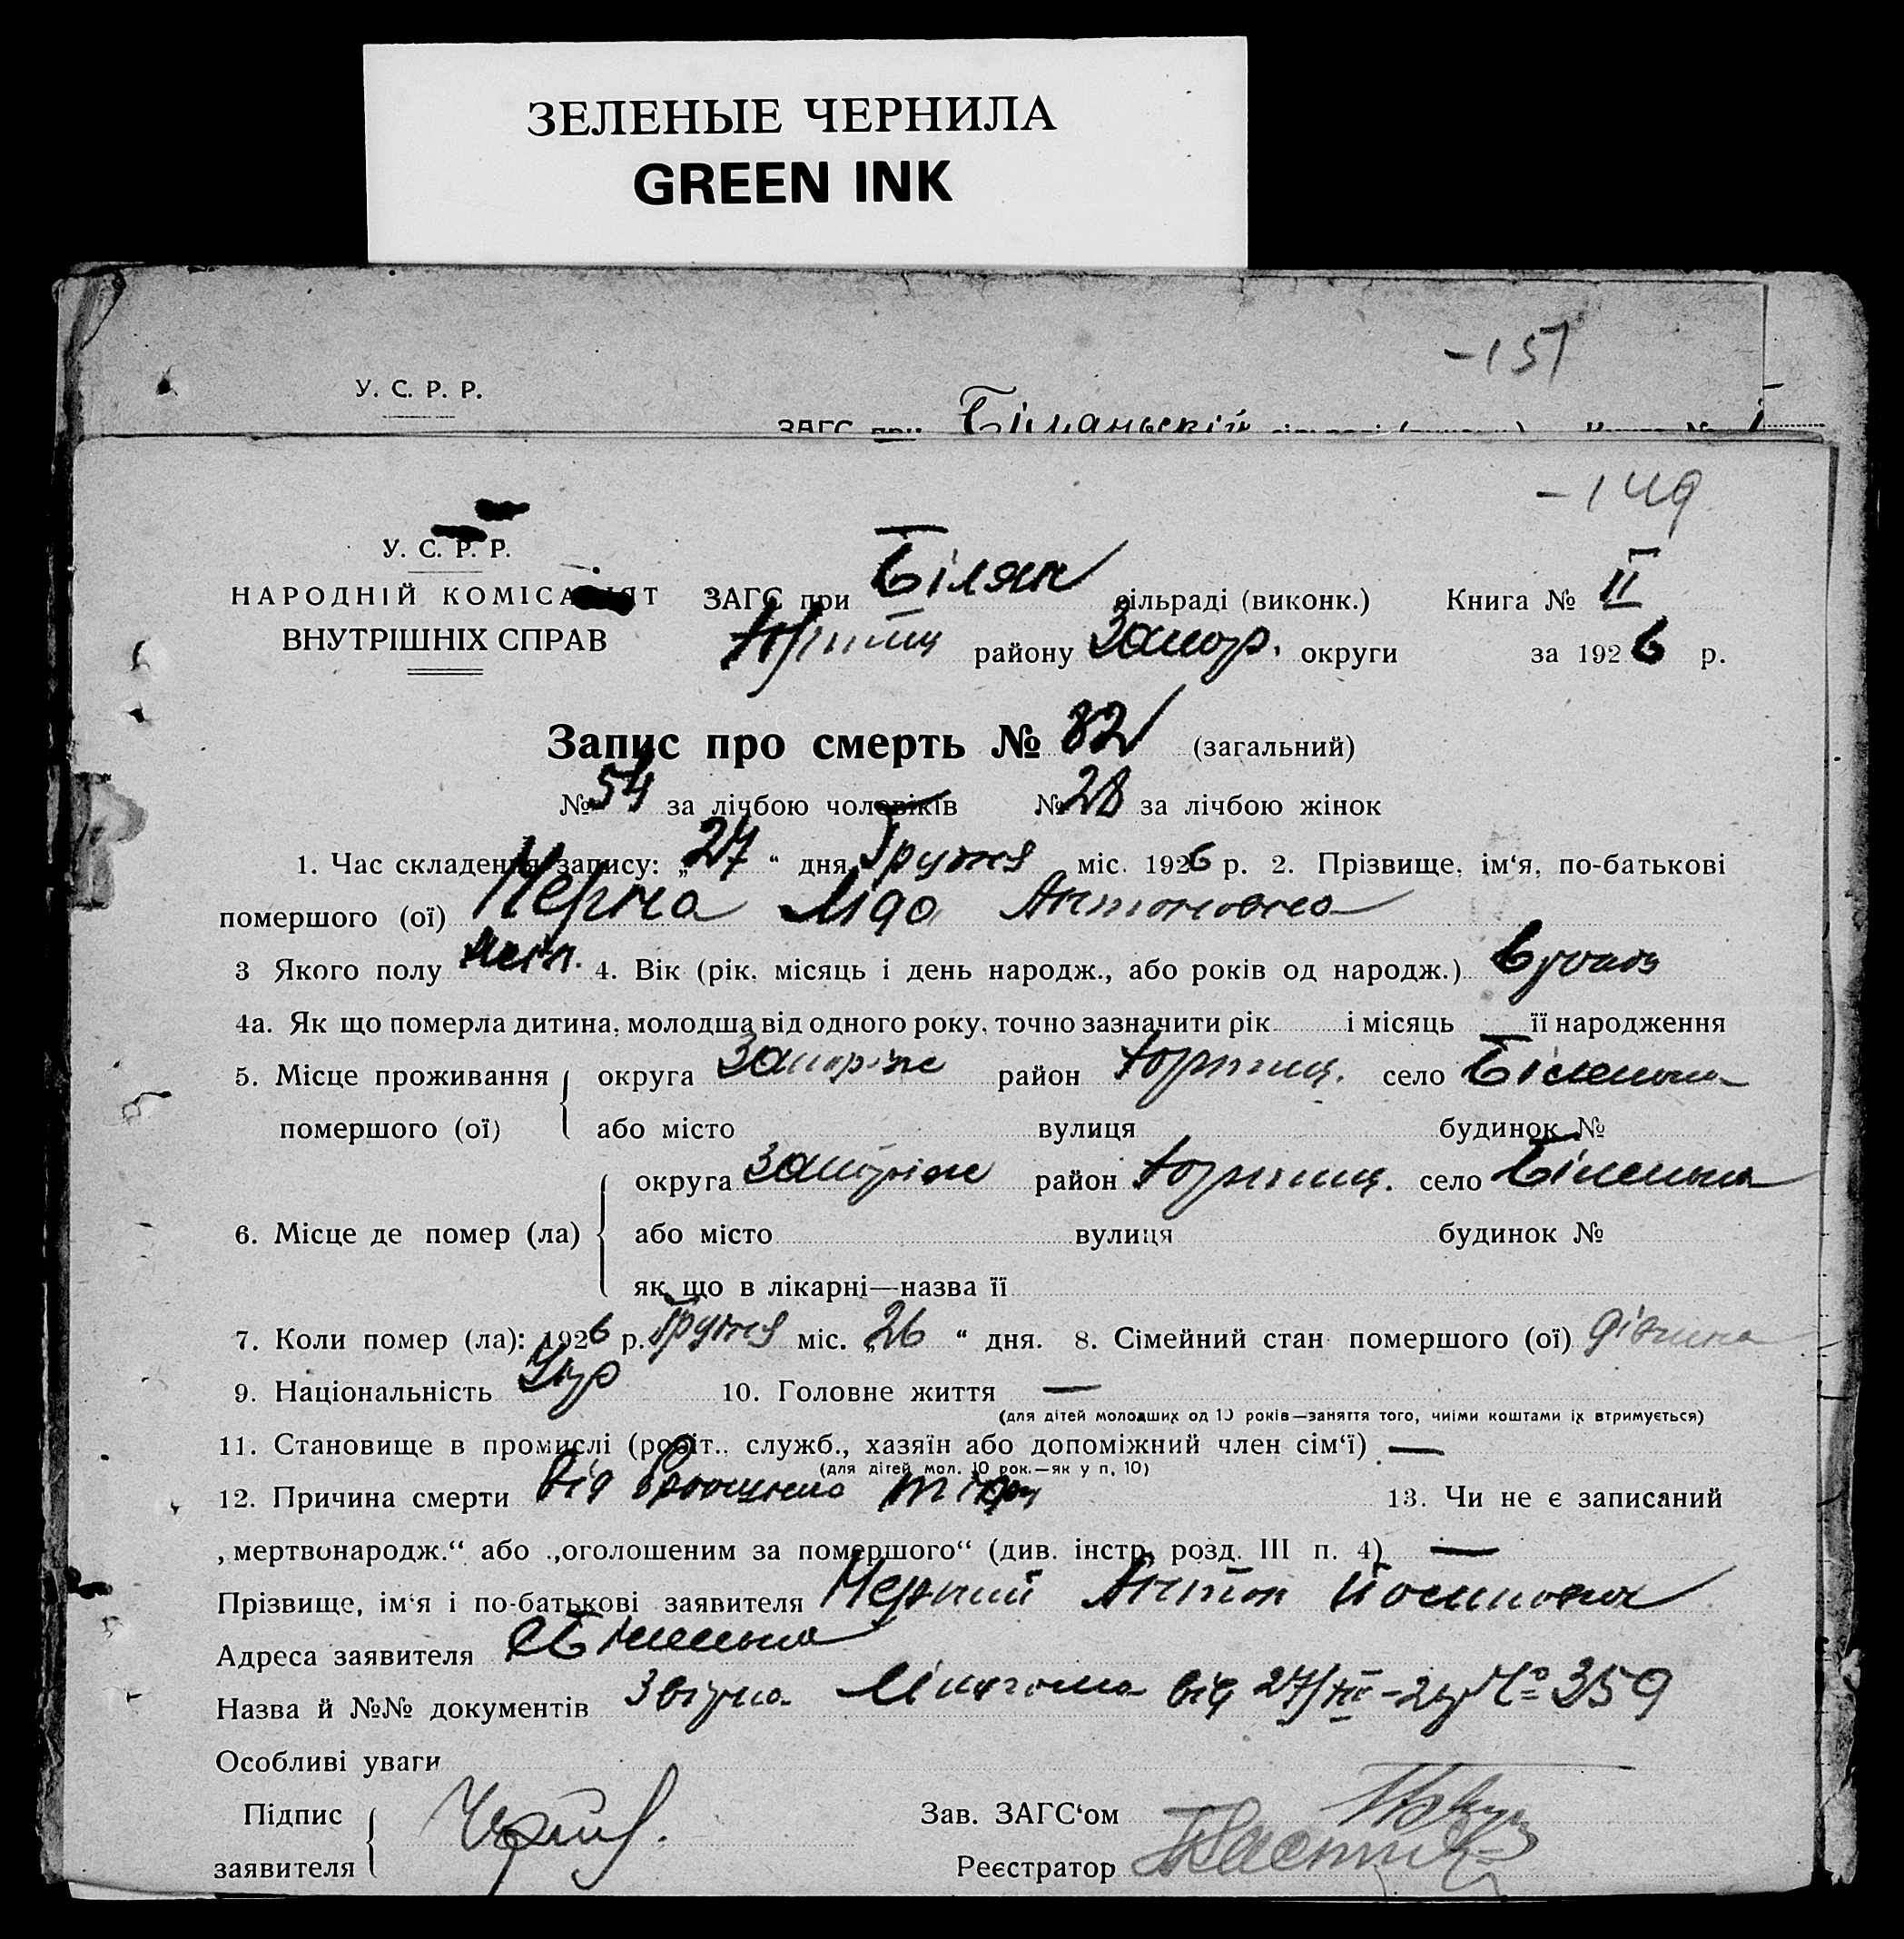 ЗЕЛЕНЫЕ ЧЕРНИЛА
GREEN INK
-151
У. С. Р. Р.
ЗАГС при
-149
У. С. Р. Р.
НАРОДНІЙ КОМІСАРІЯТ ЗАГС при Білян сільраді (виконк.) Книга № II
ВНУТРІШНІХ СПРАВ району Запор. округи за 1926 р.
Запис про смерть № 82 (загальний)
№ 54 за лічбою чоловіків № 28 за лічбою жінок
1. Час складення запису: „27“ дня Грудня міс. 1926 р. 2. Прізвище, ім‘я, по-батькові
помершого (ої) Черна Ліда Антоновна
3 Якого полу жін. 4. Вік (рік, місяць і день народж., або років од народж.) 6 років
4а. Як що померла дитина, молодша від одного року, точно зазначити рік і місяць її народження
5. Місце проживання округа Запоріж район Хортиц. село Біленька
помершого (ої) або місто вулиця будинок №
округа Запоріж район Хортиц. село Біленька
6. Місце де помер (ла) або місто вулиця будинок №
як що в лікарні—назва її
7. Коли помер (ла): 1926 р. Грудня міс. „26“ дня. 8. Сімейний стан помершого (ої) дівчина
9. Національність Укр 10. Головне життя —
(для дітей молодших од 10 років—заняття того, чиїми коштами їх втримується)
11. Становище в промислі (робіт., служб., хазяїн або допоміжний член сім‘ї) —
(для дітей мол. 10 рок.—як у п. 10)
12. Причина смерти Від 13. Чи не є записаний
„мертвонародж.“ або „оголошеним за помершого“ (див. інстр. розд. III п. 4) —
Прізвище, ім‘я і по-батькові заявителя Черний Антон Йосипович
Адреса заявителя с Біленька
Назва й №№ документів від 27/XII-26 № 359
Особливі уваги
Підпис Зав. ЗАГС‘ом
заявителя Реєстратор